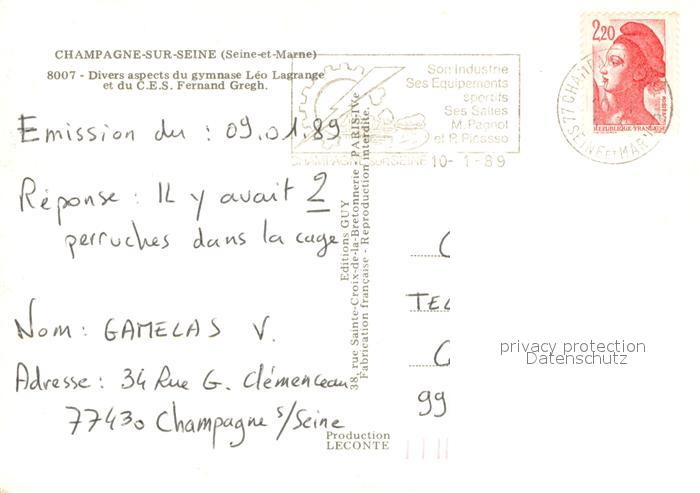 CHAMPAGNE-SUR-SEINE (Seine-et-Marne)
8007 - Divers aspects du gymnase Léo Lagrange
et du C.E.S. Fernand Gregh.
Son Industrie
Ses Equipements
sportifs
Ses Salles
M. Pagnol
et P. Picasso
CHAMPAGNE SUR SEINE 10- 1-89
2,20
REPUBLIQUE FRANÇAISE
77 CHAM
SEINE ET MAR
Emission du : 09.01.89
Réponse : Il y avait 2
perruches dans la cage
Nom : GAMELAS V.
Adresse : 34 Rue G. Clémenceau
77430 Champagne s/Seine
Editions GUY
38, rue Sainte-Croix-de-la-Bretonnerie - PARIS-IVe
Fabrication française - Reproduction interdite
Production
LECONTE
C
TEL
C
99
privacy protection
Datenschutz